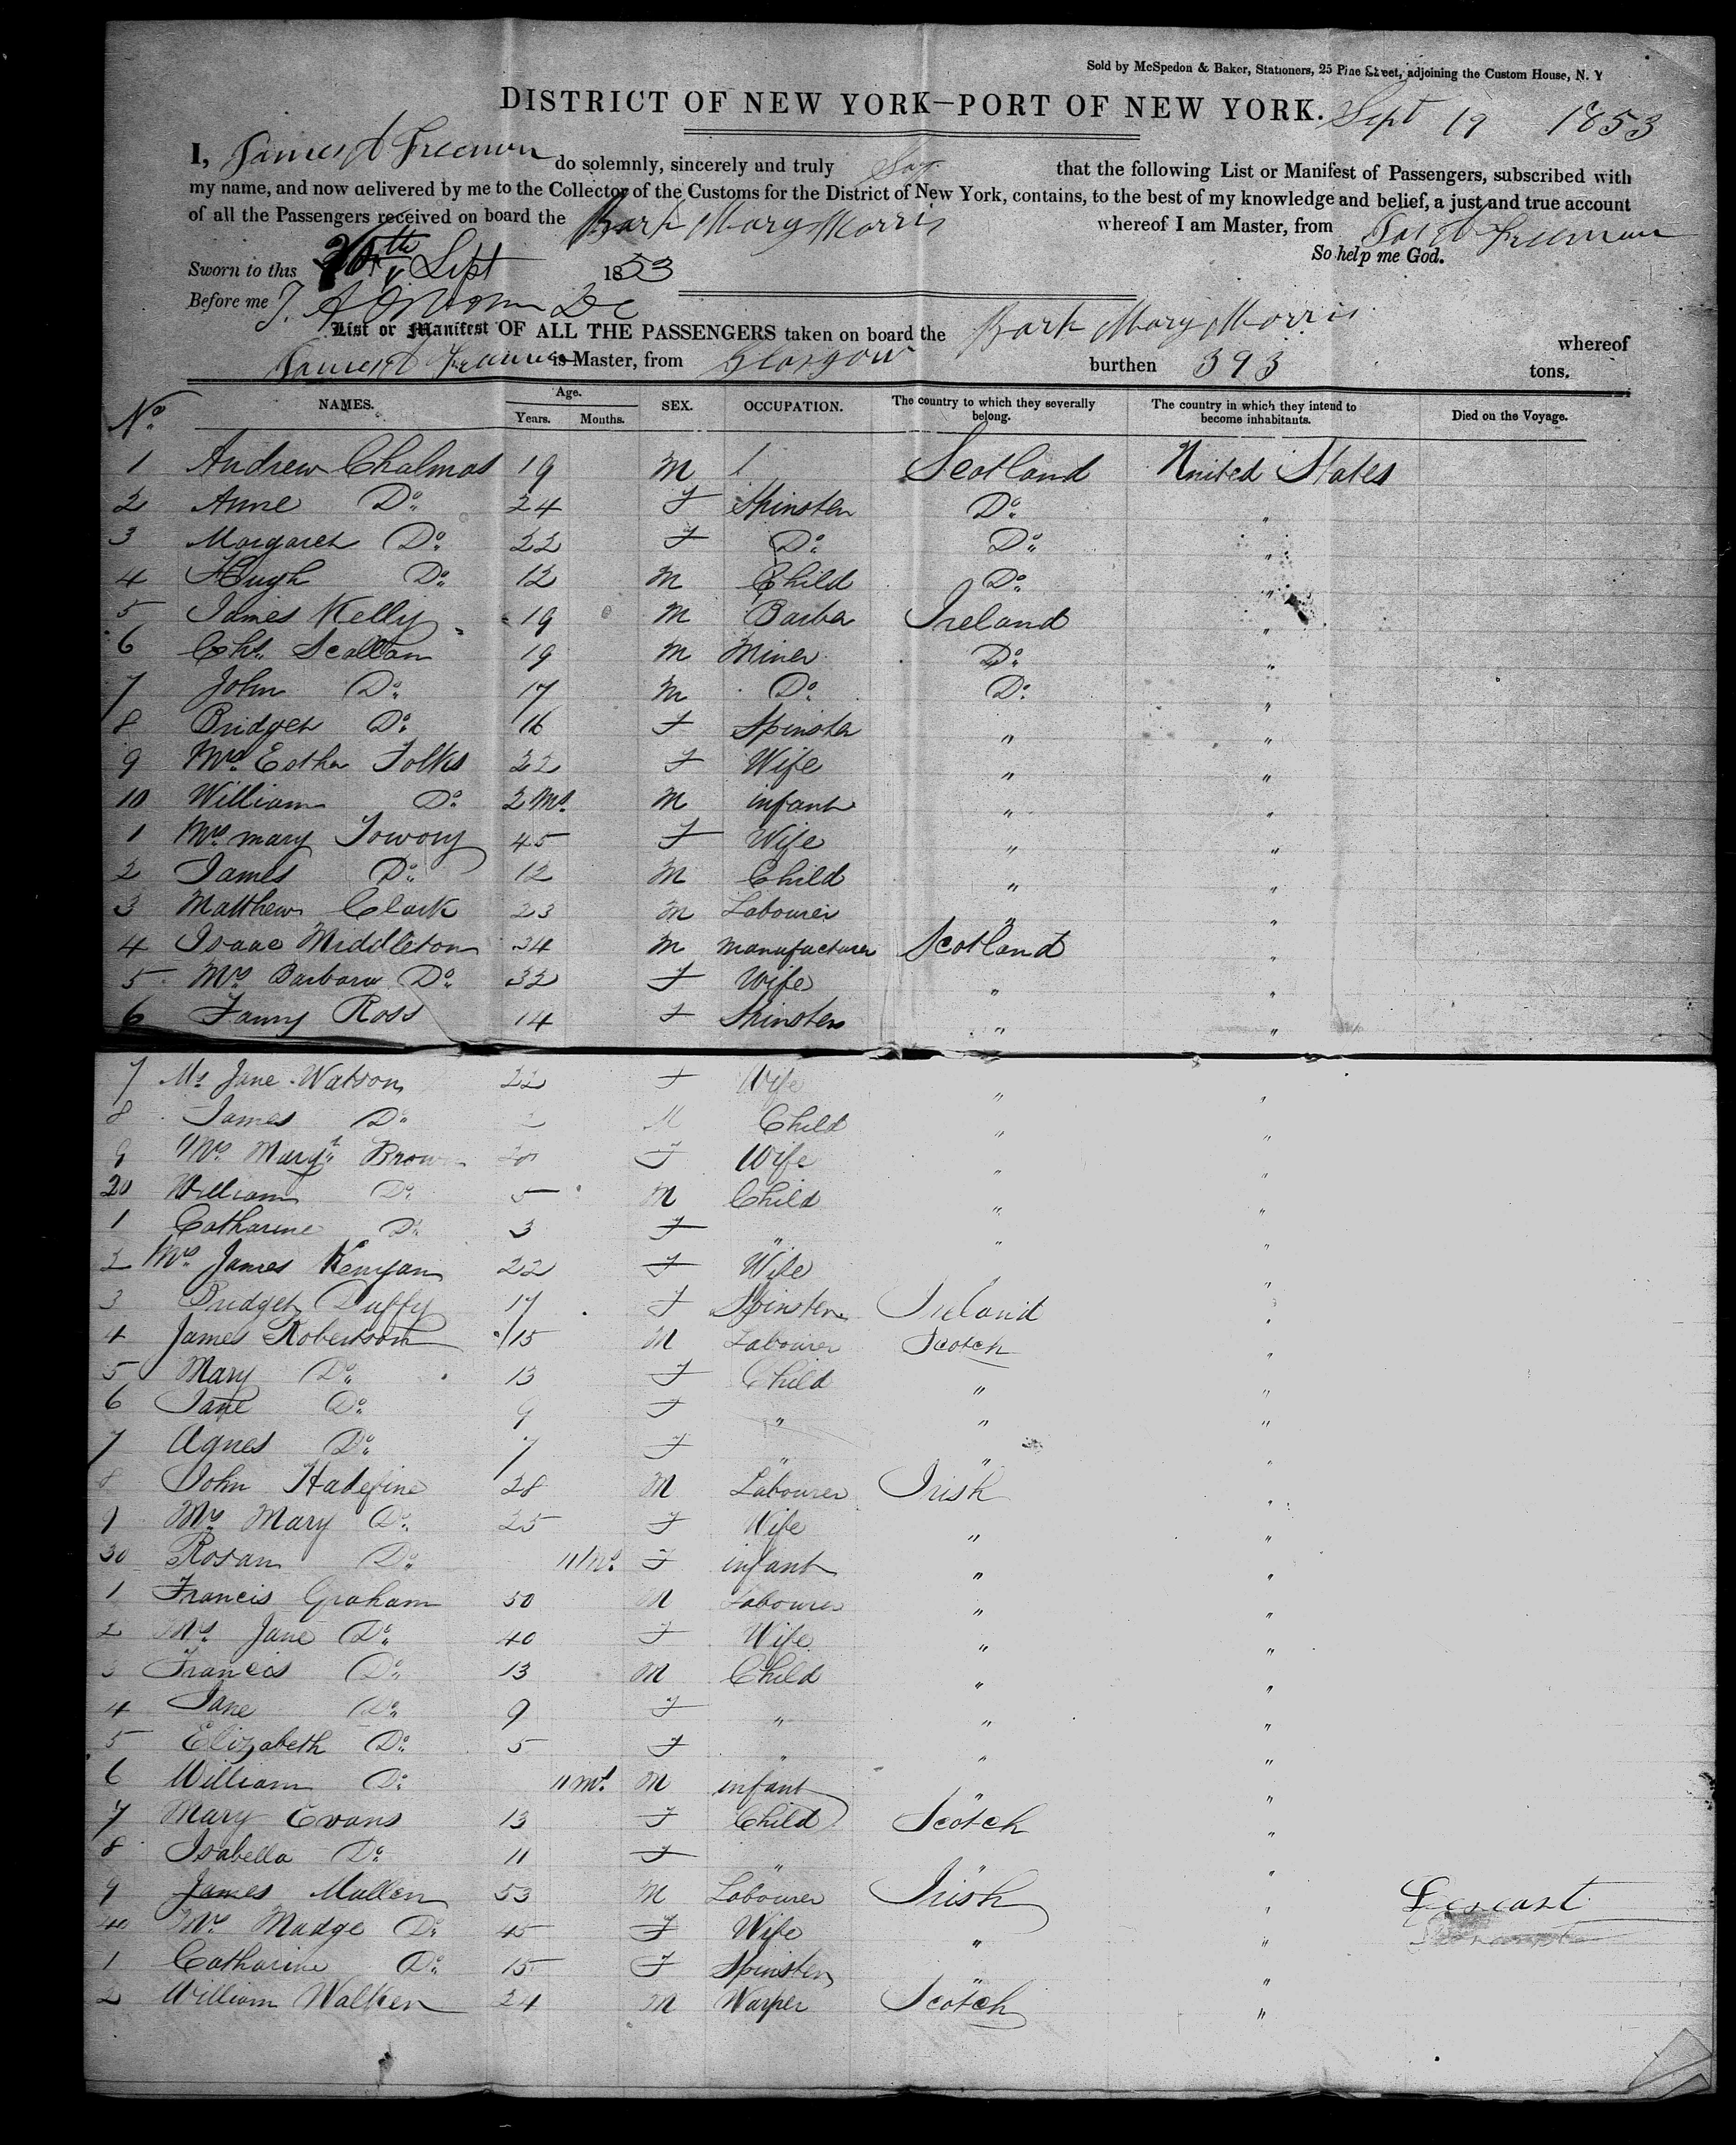 Sold by McSpedon & Baker, Stationers, 25 Pine Street, adjoining the Custom House, N. Y
DISTRICT OF NEW YORK—PORT OF NEW YORK. Sept 19 1853
I, James Freeman do solemnly, sincerely and truly Say that the following List or Manifest of Passengers, subscribed with
my name, and now delivered by me to the Collector of the Customs for the District of New York, contains, to the best of my knowledge and belief, a just and true account
of all the Passengers received on board the Bark Mary Morris whereof I am Master, from Freeman
Sworn to this Sept 1853 So help me God.
Before me
List or Manifest OF ALL THE PASSENGERS taken on board the Bark Mary Morris whereof
is Master, from Glasgow burthen 393 tons.
No. NAMES. Age. Years. Months. SEX. OCCUPATION. The country to which they severally belong. The country in which they intend to become inhabitants. Died on the Voyage.
1 Andrew Chalmas 19 M Scotland United States
2 Anne Do. 24 F Spinster Do. "
3 Margaret Do. 22 F Do. Do. "
4 Hugh Do. 12 M Child Do. "
5 James Kelly 19 M Barber Ireland "
6 Chs. Scallan 19 M Miner Do. "
7 John Do. 17 M Do. Do. "
8 Bridget Do. 16 F Spinster " "
9 Mrs. Esther Folks 22 F Wife " "
10 William Do. 2 Ms. M infant " "
1 Mrs. mary Towory 45 F Wife " "
2 James Do. 12 M Child " "
3 Matthew Clark 23 M Labourer " "
4 Isaac Middleton 34 M manufacturer Scotland "
5 Mrs. Barbara Do. 32 F Wife " "
6 Fanny Ross 14 F Spinster " "
7 Mrs. Jane Watson 22 F Wife " "
8 James Do. M Child " "
9 Mrs. Margt. Brown F Wife " "
20 William Do. 5 M Child " "
1 Catharine Do. 3 F " " "
2 Mrs. James Kenyan 22 F Wife "
3 Bridget Duffy 17 F Spinster Ireland "
4 James Robertson 15 M Labourer Scotch "
5 Mary Do. 13 F Child " "
6 Jane Do. 9 F " " "
7 Agnes Do. 7 F " " "
8 John Hadefine 28 M Labourer Irish "
9 Mrs. Mary Do. 25 F Wife " "
30 Rosan Do. 11 Ms. F infant " "
1 Francis Graham 50 M Labourer " "
2 Mrs. Jane Do. 40 F Wife " "
3 Francis Do. 13 M Child " "
4 Jane Do. 9 F " " "
5 Elizabeth Do. 5 F " " "
6 William Do. 11 Ms. M infant " "
7 Mary Evans 13 F Child Scotch "
8 Isabella Do. 11 F " "
9 James Mullen 53 M Labourer Irish "
40 Mrs. Madge Do. 45 F Wife " "
1 Catharine Do. 15 F Spinster " "
2 William Walker 24 M Warper Scotch "